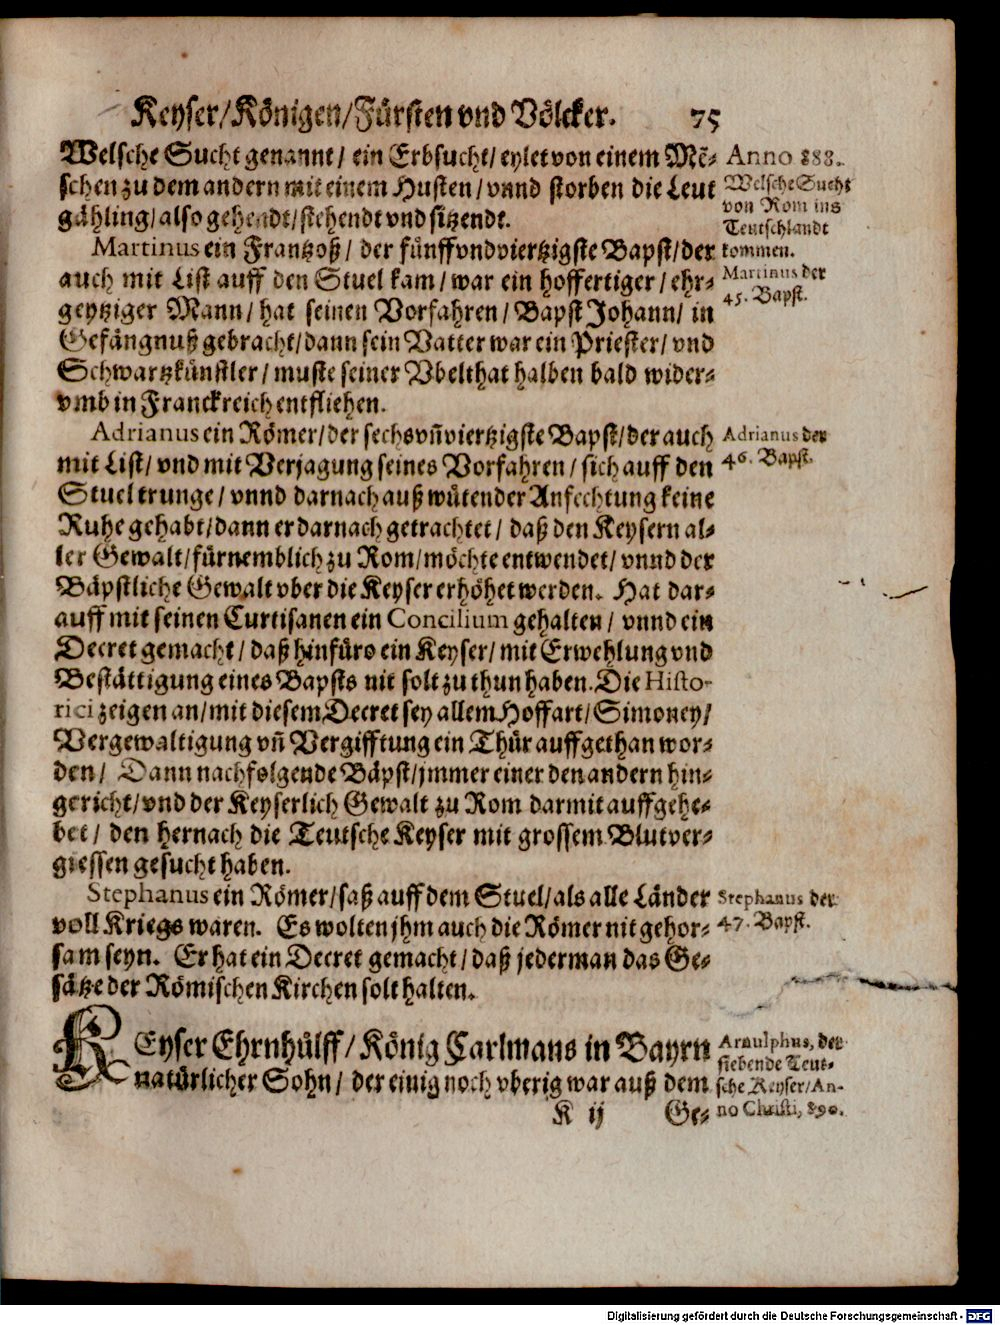 Keyser/Königen/Fürsten vnd Völcker. 75
Welsche Sucht genannt/ ein Erbsucht/ eylet von einem Mẽ-
schen zu dem andern mit einem Husten/ vnnd storben die Leut
gähling/ also gehendt/ stehendt vnd sitzendt.
Anno 888.
Welsche Sucht
von Rom ins
Teutschlandt
kommen.
Martinus ein Frantzoß/ der fünffvndviertzigste Bapst/ der
auch mit List auff den Stuel kam/ war ein hoffertiger/ ehr-
geytziger Mann/ hat seinen Vorfahren/ Bapst Johann/ in
Gefängnuß gebracht/ dann sein Vatter war ein Priester/ vnd
Schwartzkünstler/ muste seiner Vbelthat halben bald wider-
vmb in Franckreich entfliehen.
Martinus der
45. Bapst.
Adrianus ein Römer/ der sechsvñviertzigste Bapst/ der auch
mit List/ vnd mit Verjagung seines Vorfahren/ sich auff den
Stuel trunge/ vnnd darnach auß wütender Anfechtung keine
Ruhe gehabt/ dann er darnach getrachtet/ daß den Keysern al-
ler Gewalt/ fürnemblich zu Rom/ möchte entwendet/ vnnd der
Bäpstliche Gewalt vber die Keyser erhöhet werden. Hat dar-
auff mit seinen Curtisanen ein Concilium gehalten/ vnnd ein
Decret gemacht/ daß hinfüro ein Keyser/ mit Erwehlung vnd
Bestättigung eines Bapsts nit solt zu thun haben. Die Histo-
rici zeigen an/ mit diesem Decret sey allem Hoffart/ Simoney/
Vergewaltigung vñ Vergifftung ein Thür auffgethan wor-
den/ Dann nachfolgende Bäpst/ jmmer einer den andern hin-
gericht/ vnd der Keyserlich Gewalt zu Rom darmit auffgehe-
bet/ den hernach die Teutsche Keyser mit grossem Blutver-
giessen gesucht haben.
Adrianus der
46. Bapst.
Stephanus ein Römer/ saß auff dem Stuel/ als alle Länder
voll Kriegs waren. Es wolten jhm auch die Römer nit gehor-
sam seyn. Er hat ein Decret gemacht/ daß jederman das Ge-
sätze der Römischen Kirchen solt halten.
Stephanus der
47. Bapst.
KEyser Ehrnhülff/ König Carlmans in Bayrn
natürlicher Sohn/ der einig noch vberig war auß dem
Arnulphus, der
siebende Teut-
sche Keyser/ An-
no Christi, 890.
K ij Ge-
Digitalisierung gefördert durch die Deutsche Forschungsgemeinschaft - DFG